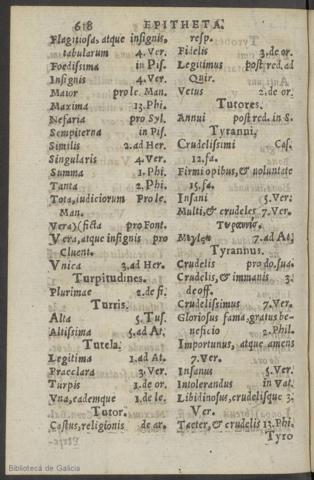 618 EPITHETA.
Flagitiosa, atque insignis,
tabularum 4. Ver.
Foedissima in Pis.
Insignis 4. Ver.
Maior pro le. Man.
Maxima 13. Phi.
Nefaria pro Syl.
Sempiterna in Pis.
Similis 2. ad Her.
Singularis 4. Ver.
Summa 1. Phi.
Tanta 2. Phi.
Tota, iudiciorum Pro le.
Man.
Vera)(ficta pro Font.
Vera, atque insignis pro
Cluent.
Vnica 3. ad Her.
Turpitudines.
Plurimae 2. de fi.
Turris.
Alta 5. Tus.
Altissima 5. ad At.
Tutela.
Legitima 1. ad At.
Praeclara 3. Ver.
Turpis 1. de or.
Vna, eademque 1. de le.
Tutor.
Castus, religionis de ar.
resp.
Fidelis 3. de or.
Legitimus post red. ad
Quir.
Vetus 2. de or.
Tutores.
Annui post red. in S.
Tyranni.
Crudelissimi Cas.
12. fa.
Firmi opibus, & uoluntate
15. fa.
Insani 5. Ver.
Multi, & crudeles 7. Ver.
7. ad At.
Tyrannus.
Crudelis pro do. sua.
Crudelis, & immanis 3.
de off.
Crudelissimus 7. Ver.
Gloriosus fama, gratus be-
neficio 2. Phil.
Importunus, atque amens
7. Ver.
Insanus 5. Ver.
Intolerandus in Vat.
Libidinosus, crudelisque 3.
Ver.
Taeter, & crudelis 13. Phi.
Tyro
Biblioteca de Galicia